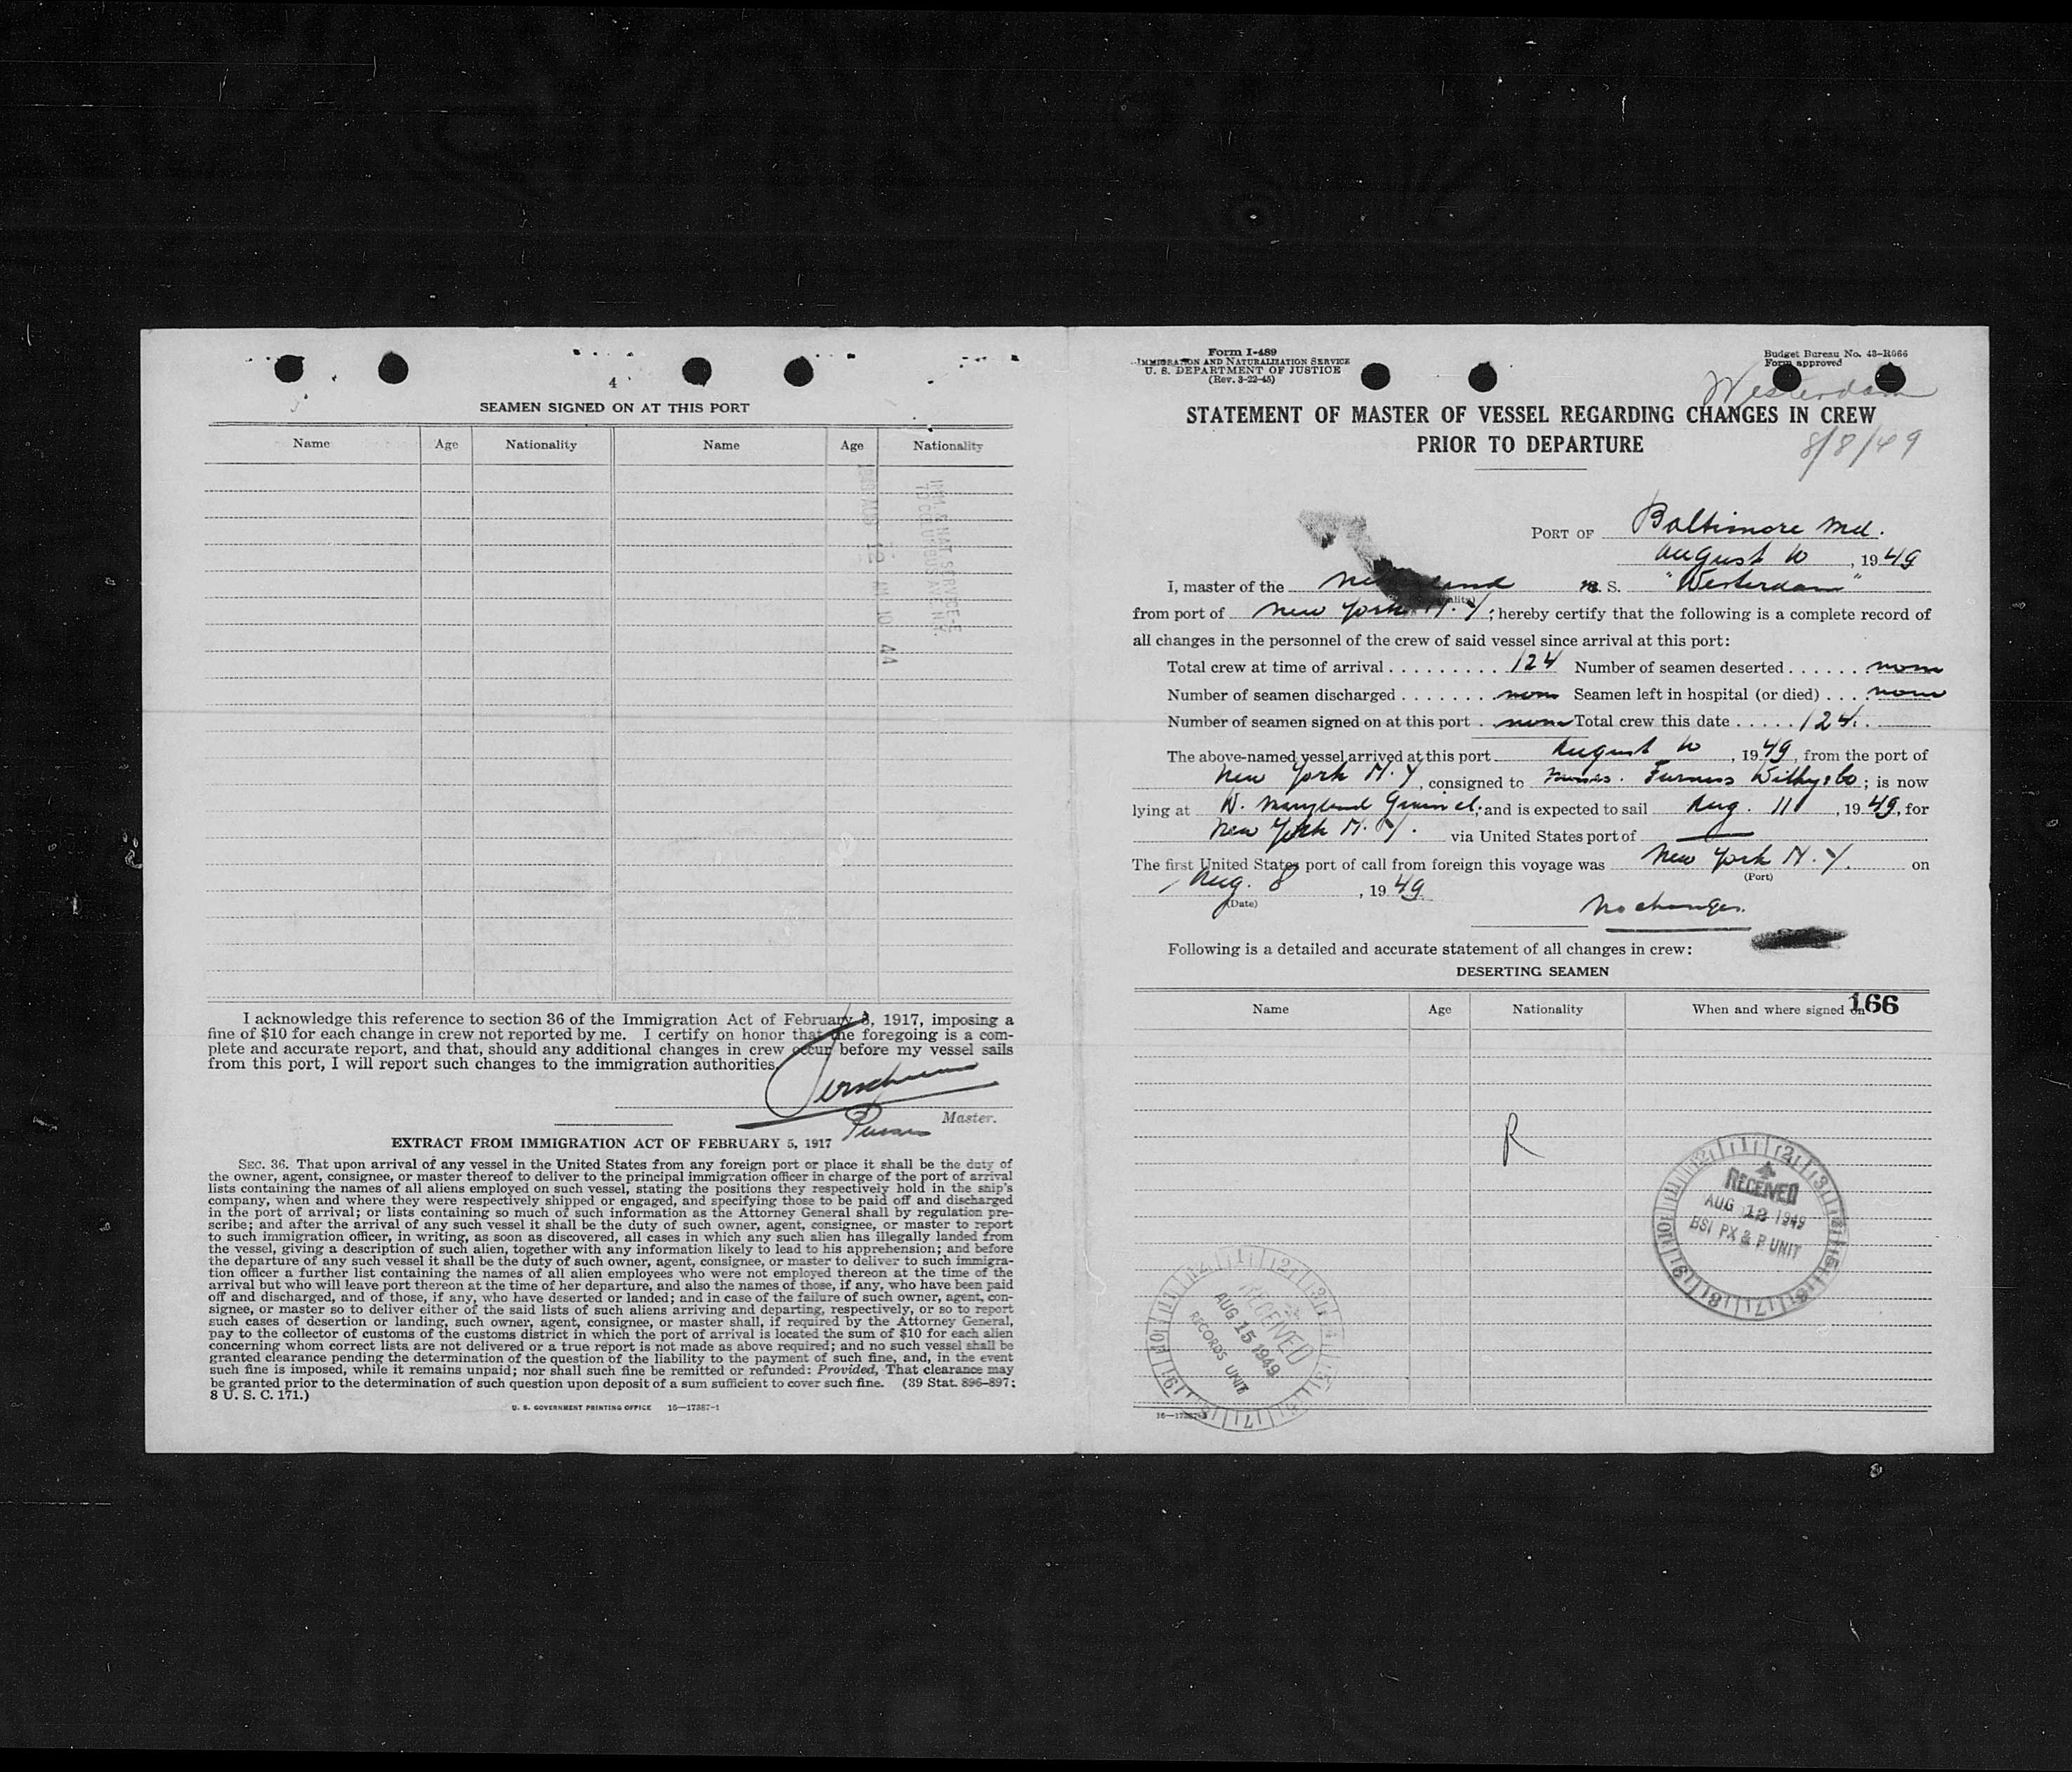 4
SEAMEN SIGNED ON AT THIS PORT
Name Age Nationality Name Age Nationality
1949 AUG 15 AM 10 44
IMM & NAT SERVICE-5
70 COLUMBUS AVE. N.Y.
I acknowledge this reference to section 36 of the Immigration Act of February 5, 1917, imposing a
fine of $10 for each change in crew not reported by me. I certify on honor that the foregoing is a com-
plete and accurate report, and that, should any additional changes in crew occur before my vessel sails
from this port, I will report such changes to the immigration authorities.
Master.
Purser
EXTRACT FROM IMMIGRATION ACT OF FEBRUARY 5, 1917
SEC. 36. That upon arrival of any vessel in the United States from any foreign port or place it shall be the duty of
the owner, agent, consignee, or master thereof to deliver to the principal immigration officer in charge of the port of arrival
lists containing the names of all aliens employed on such vessel, stating the positions they respectively hold in the ship's
company, when and where they were respectively shipped or engaged, and specifying those to be paid off and discharged
in the port of arrival; or lists containing so much of such information as the Attorney General shall by regulation pre-
scribe; and after the arrival of any such vessel it shall be the duty of such owner, agent, consignee, or master to report
to such immigration officer, in writing, as soon as discovered, all cases in which any such alien has illegally landed from
the vessel, giving a description of such alien, together with any information likely to lead to his apprehension; and before
the departure of any such vessel it shall be the duty of such owner, agent, consignee, or master to deliver to such immigra-
tion officer a further list containing the names of all alien employees who were not employed thereon at the time of the
arrival but who will leave port thereon at the time of her departure, and also the names of those, if any, who have been paid
off and discharged, and of those, if any, who have deserted or landed; and in case of the failure of such owner, agent, con-
signee, or master so to deliver either of the said lists of such aliens arriving and departing, respectively, or so to report
such cases of desertion or landing, such owner, agent, consignee, or master shall, if required by the Attorney General,
pay to the collector of customs of the customs district in which the port of arrival is located the sum of $10 for each alien
concerning whom correct lists are not delivered or a true report is not made as above required; and no such vessel shall be
granted clearance pending the determination of the question of the liability to the payment of such fine, and, in the event
such fine is imposed, while it remains unpaid; nor shall such fine be remitted or refunded: Provided, That clearance may
be granted prior to the determination of such question upon deposit of a sum sufficient to cover such fine. (39 Stat. 896-897;
8 U. S. C. 171.)
U. S. GOVERNMENT PRINTING OFFICE 16—17387-1
Form I-489
IMMIGRATION AND NATURALIZATION SERVICE
U. S. DEPARTMENT OF JUSTICE
(Rev. 3-22-45)
Budget Bureau No. 43-R066
Form approved
Westerdam
STATEMENT OF MASTER OF VESSEL REGARDING CHANGES IN CREW
PRIOR TO DEPARTURE
8/8/49
PORT OF Baltimore Md.
August 10, 1949
I, master of the S. "Westerdam"
from port of New York N.Y; hereby certify that the following is a complete record of
all changes in the personnel of the crew of said vessel since arrival at this port:
Total crew at time of arrival 124 Number of seamen deserted none
Number of seamen discharged none Seamen left in hospital (or died) none
Number of seamen signed on at this port none Total crew this date 124.
The above-named vessel arrived at this port August 10, 1949, from the port of
New York N.Y, consigned to Furness Withy & Co; is now
lying at W. Maryland and is expected to sail Aug. 11, 1949, for
New York N.Y. via United States port of —
The first United States port of call from foreign this voyage was New York N.Y. on
(Port)
Aug. 8, 1949
(Date)
No changes.
Following is a detailed and accurate statement of all changes in crew:
DESERTING SEAMEN
Name Age Nationality When and where signed on
166
R
RECEIVED
AUG 12 1949
BSI PX & P UNIT
RECEIVED
AUG 15 1949
RECORDS UNIT
16—17387-1